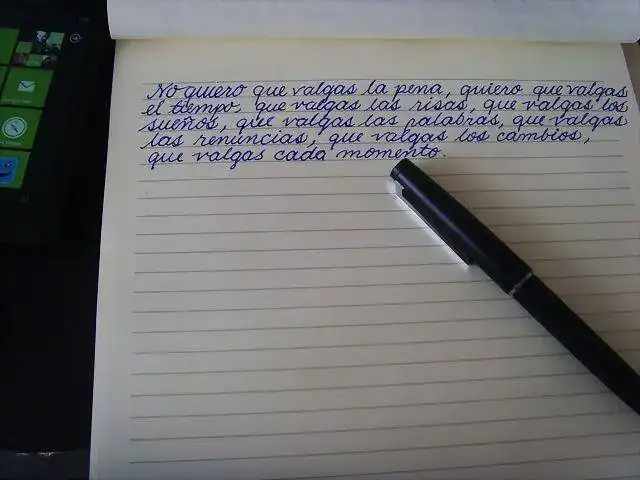 No quiero que valgas la pena, quiero que valgas
el tiempo, que valgas las risas, que valgas los
sueños, que valgas las palabras, que valgas
las renuncias, que valgas los cambios,
que valgas cada momento.